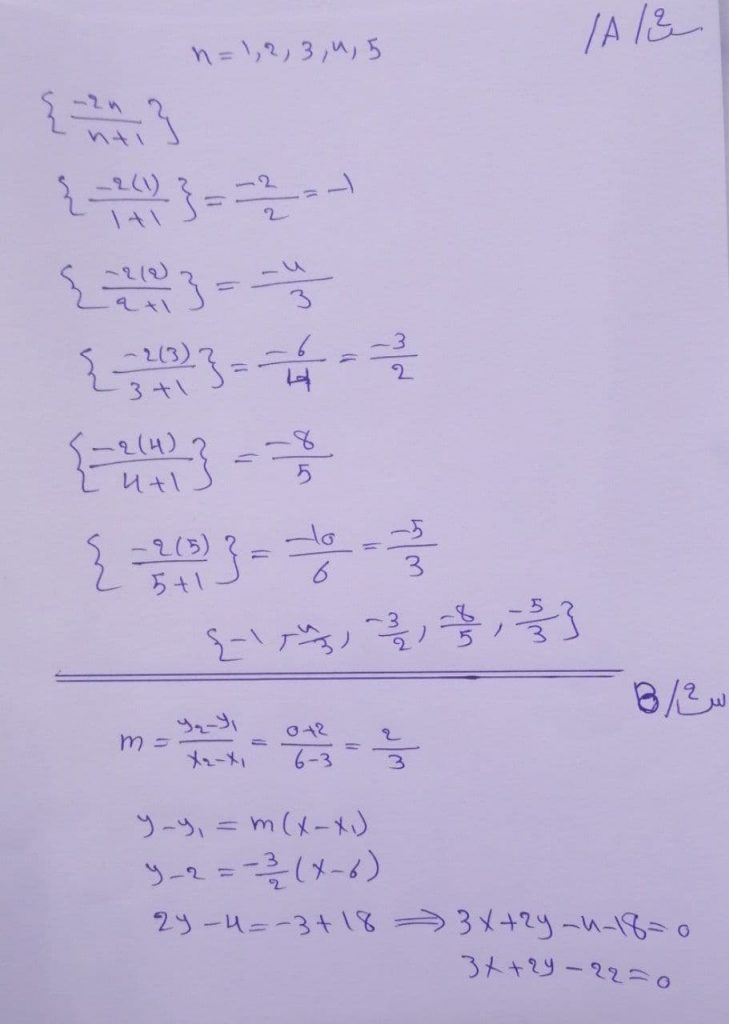 س2/A/
n=1,2,3,4,5
{-2n/n+1}
{-2(1)/1+1} = -2/2 = -1
{-2(2)/2+1} = -4/3
{-2(3)/3+1} = -6/4 = -3/2
{-2(4)/4+1} = -8/5
{-2(5)/5+1} = -10/6 = -5/3
{-1, -4/3, -3/2, -8/5, -5/3}
س2/B
m = y₂-y₁/x₂-x₁ = 0+2/6-3 = 2/3
y-y₁ = m(x-x₁)
y-2 = -3/2(x-6)
2y-4=-3+18 ⟹ 3x+2y-4-18=0
3x+2y-22=0